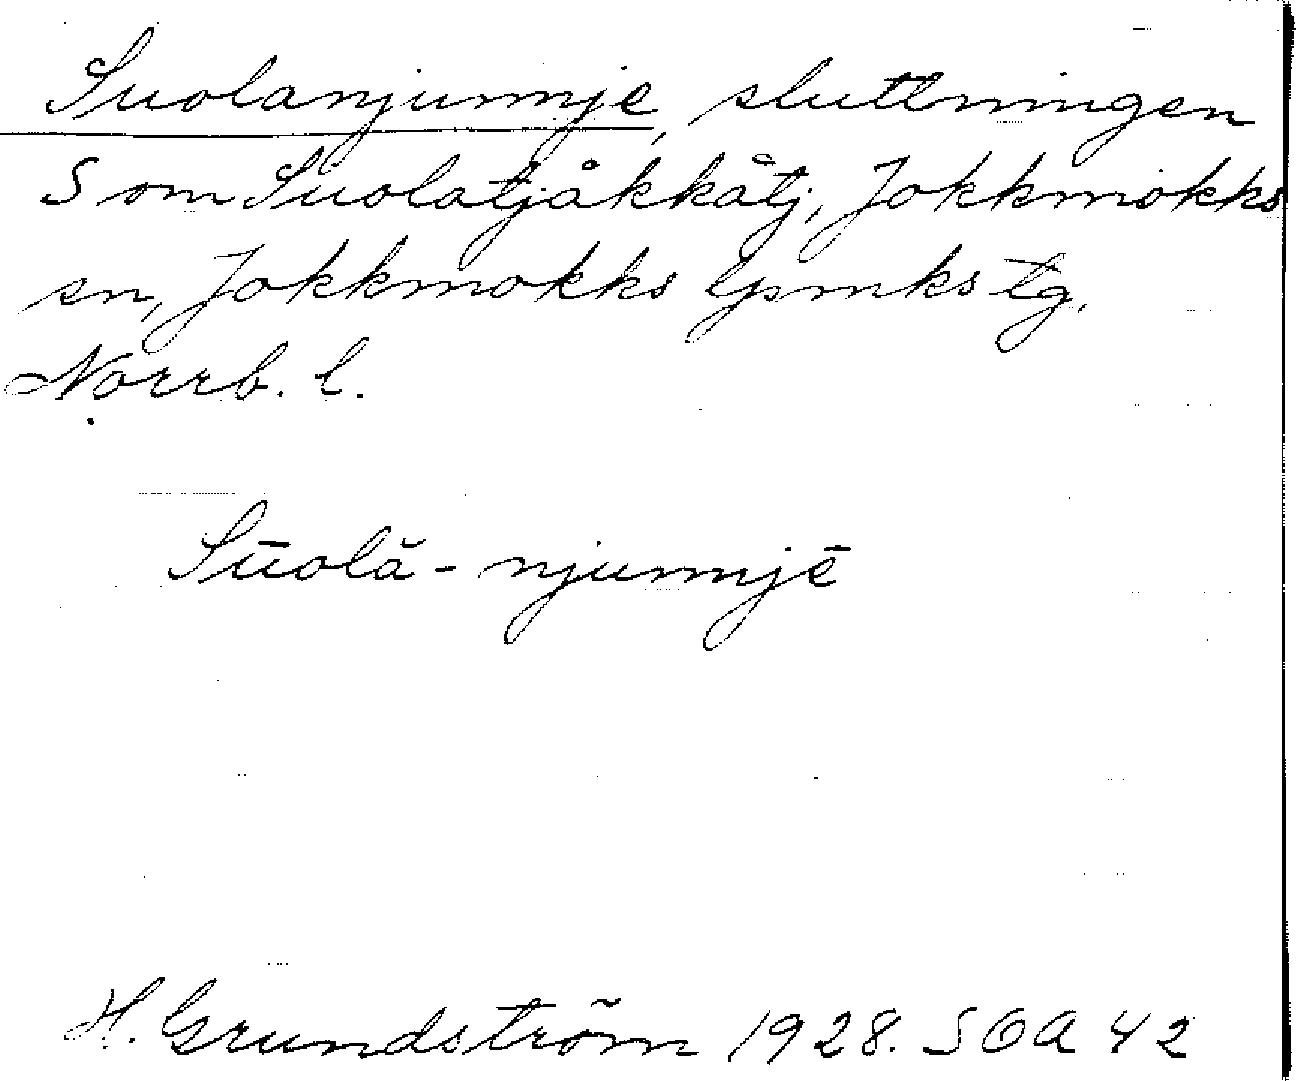 Suolanjunnje, sluttningen
S om Suolatjåkkåtj, Jokkmokks
sn, Jokkmokks lpmks tg,
Norrb. l.
Sūolă-njunnjē
H. Grundström 1928. SOA 42